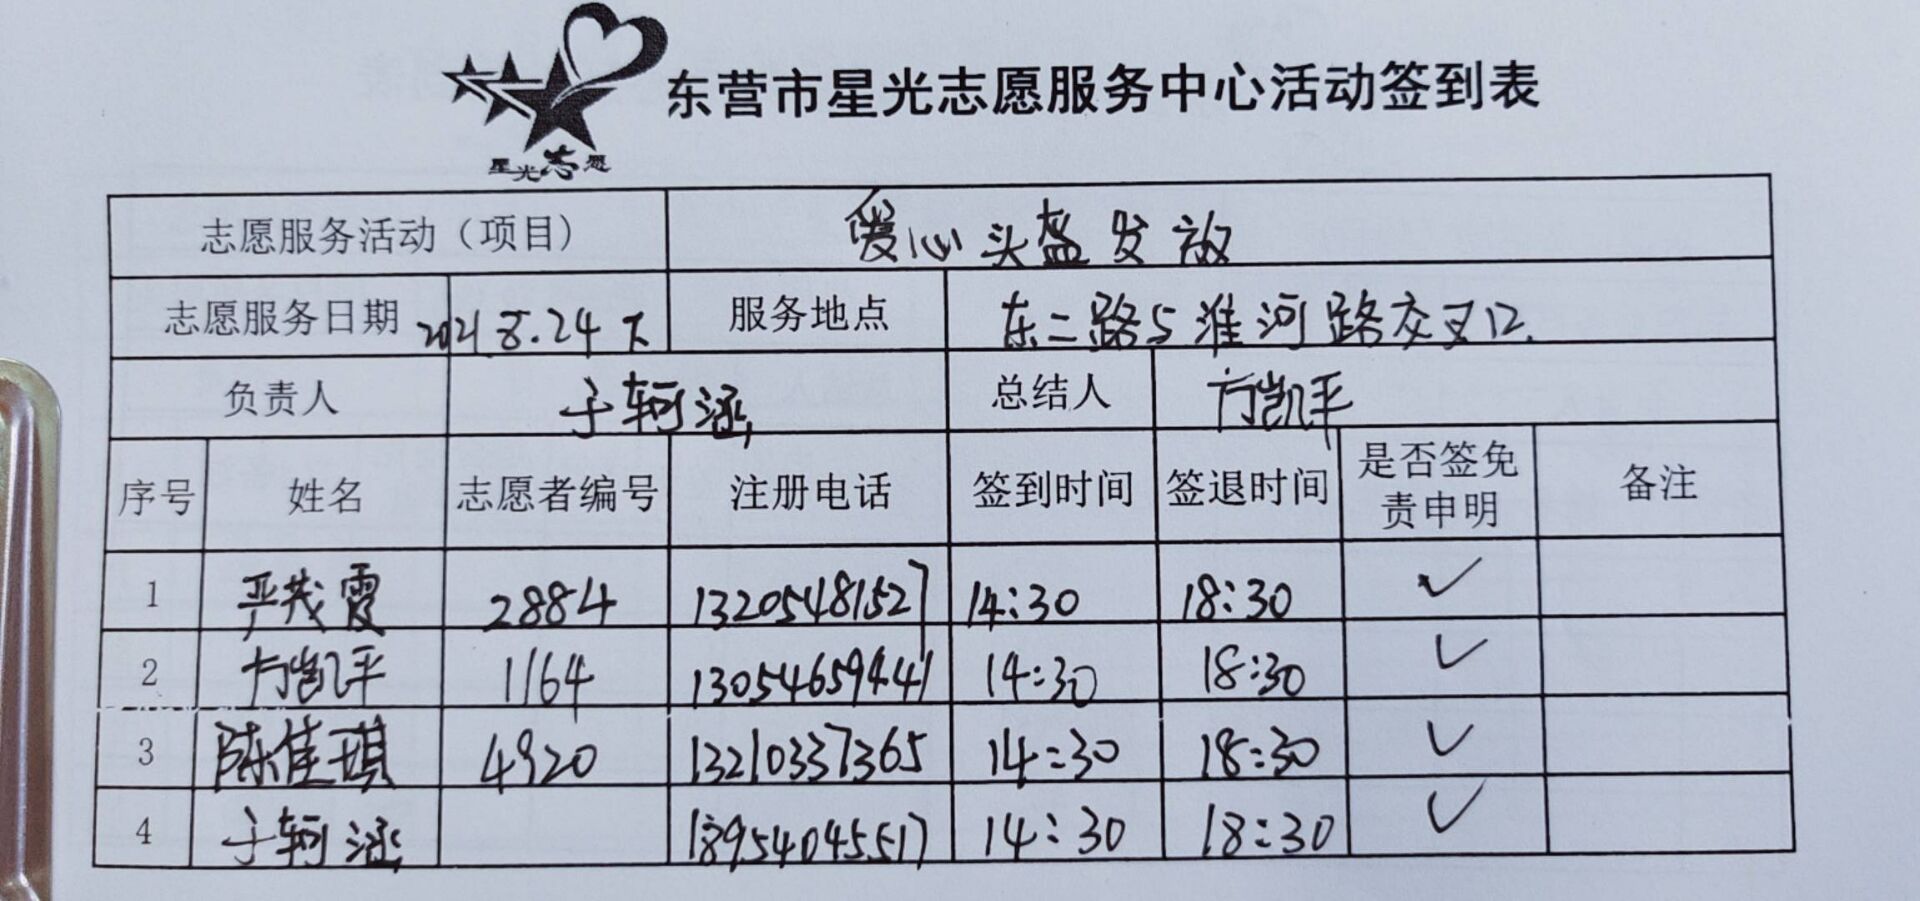 东营市星光志愿服务中心活动签到表
星光志愿
志愿服务活动（项目） 爱心头盔发放
志愿服务日期 2021.8.24下 服务地点 东二路与淮河路交叉口.
负责人 于轲涵 总结人 方凯平
序号 姓名 志愿者编号 注册电话 签到时间 签退时间 是否签免责申明 备注
1 严茂霞 2884 13205481527 14:30 18:30 ✓
2 方凯平 1164 13054659441 14:30 18:30 ✓
3 陈佳琪 4920 13210337365 14:30 18:30 ✓
4 于轲涵 18954045517 14:30 18:30 ✓